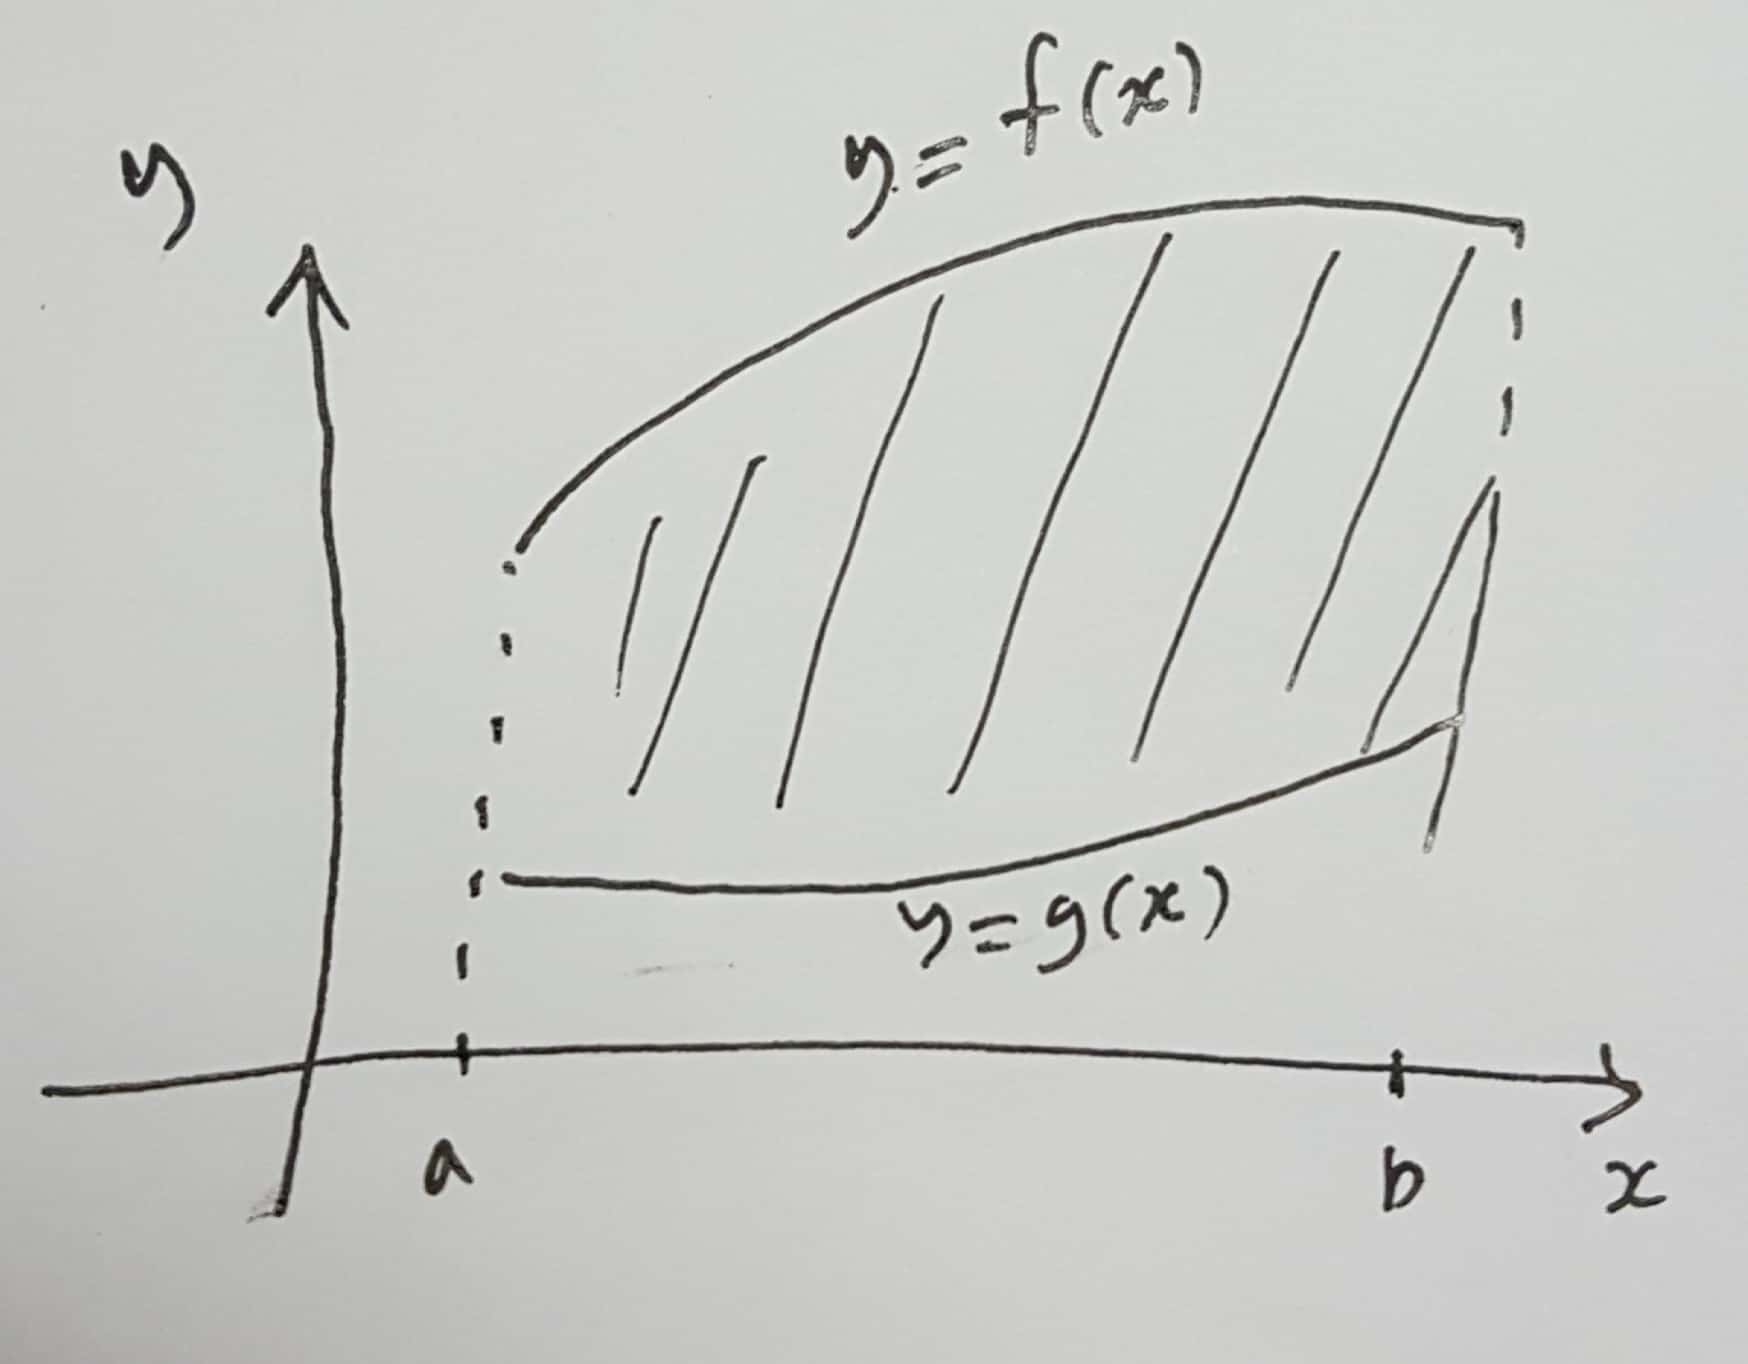 y = f(x)
y
y = g(x)
a
b
x